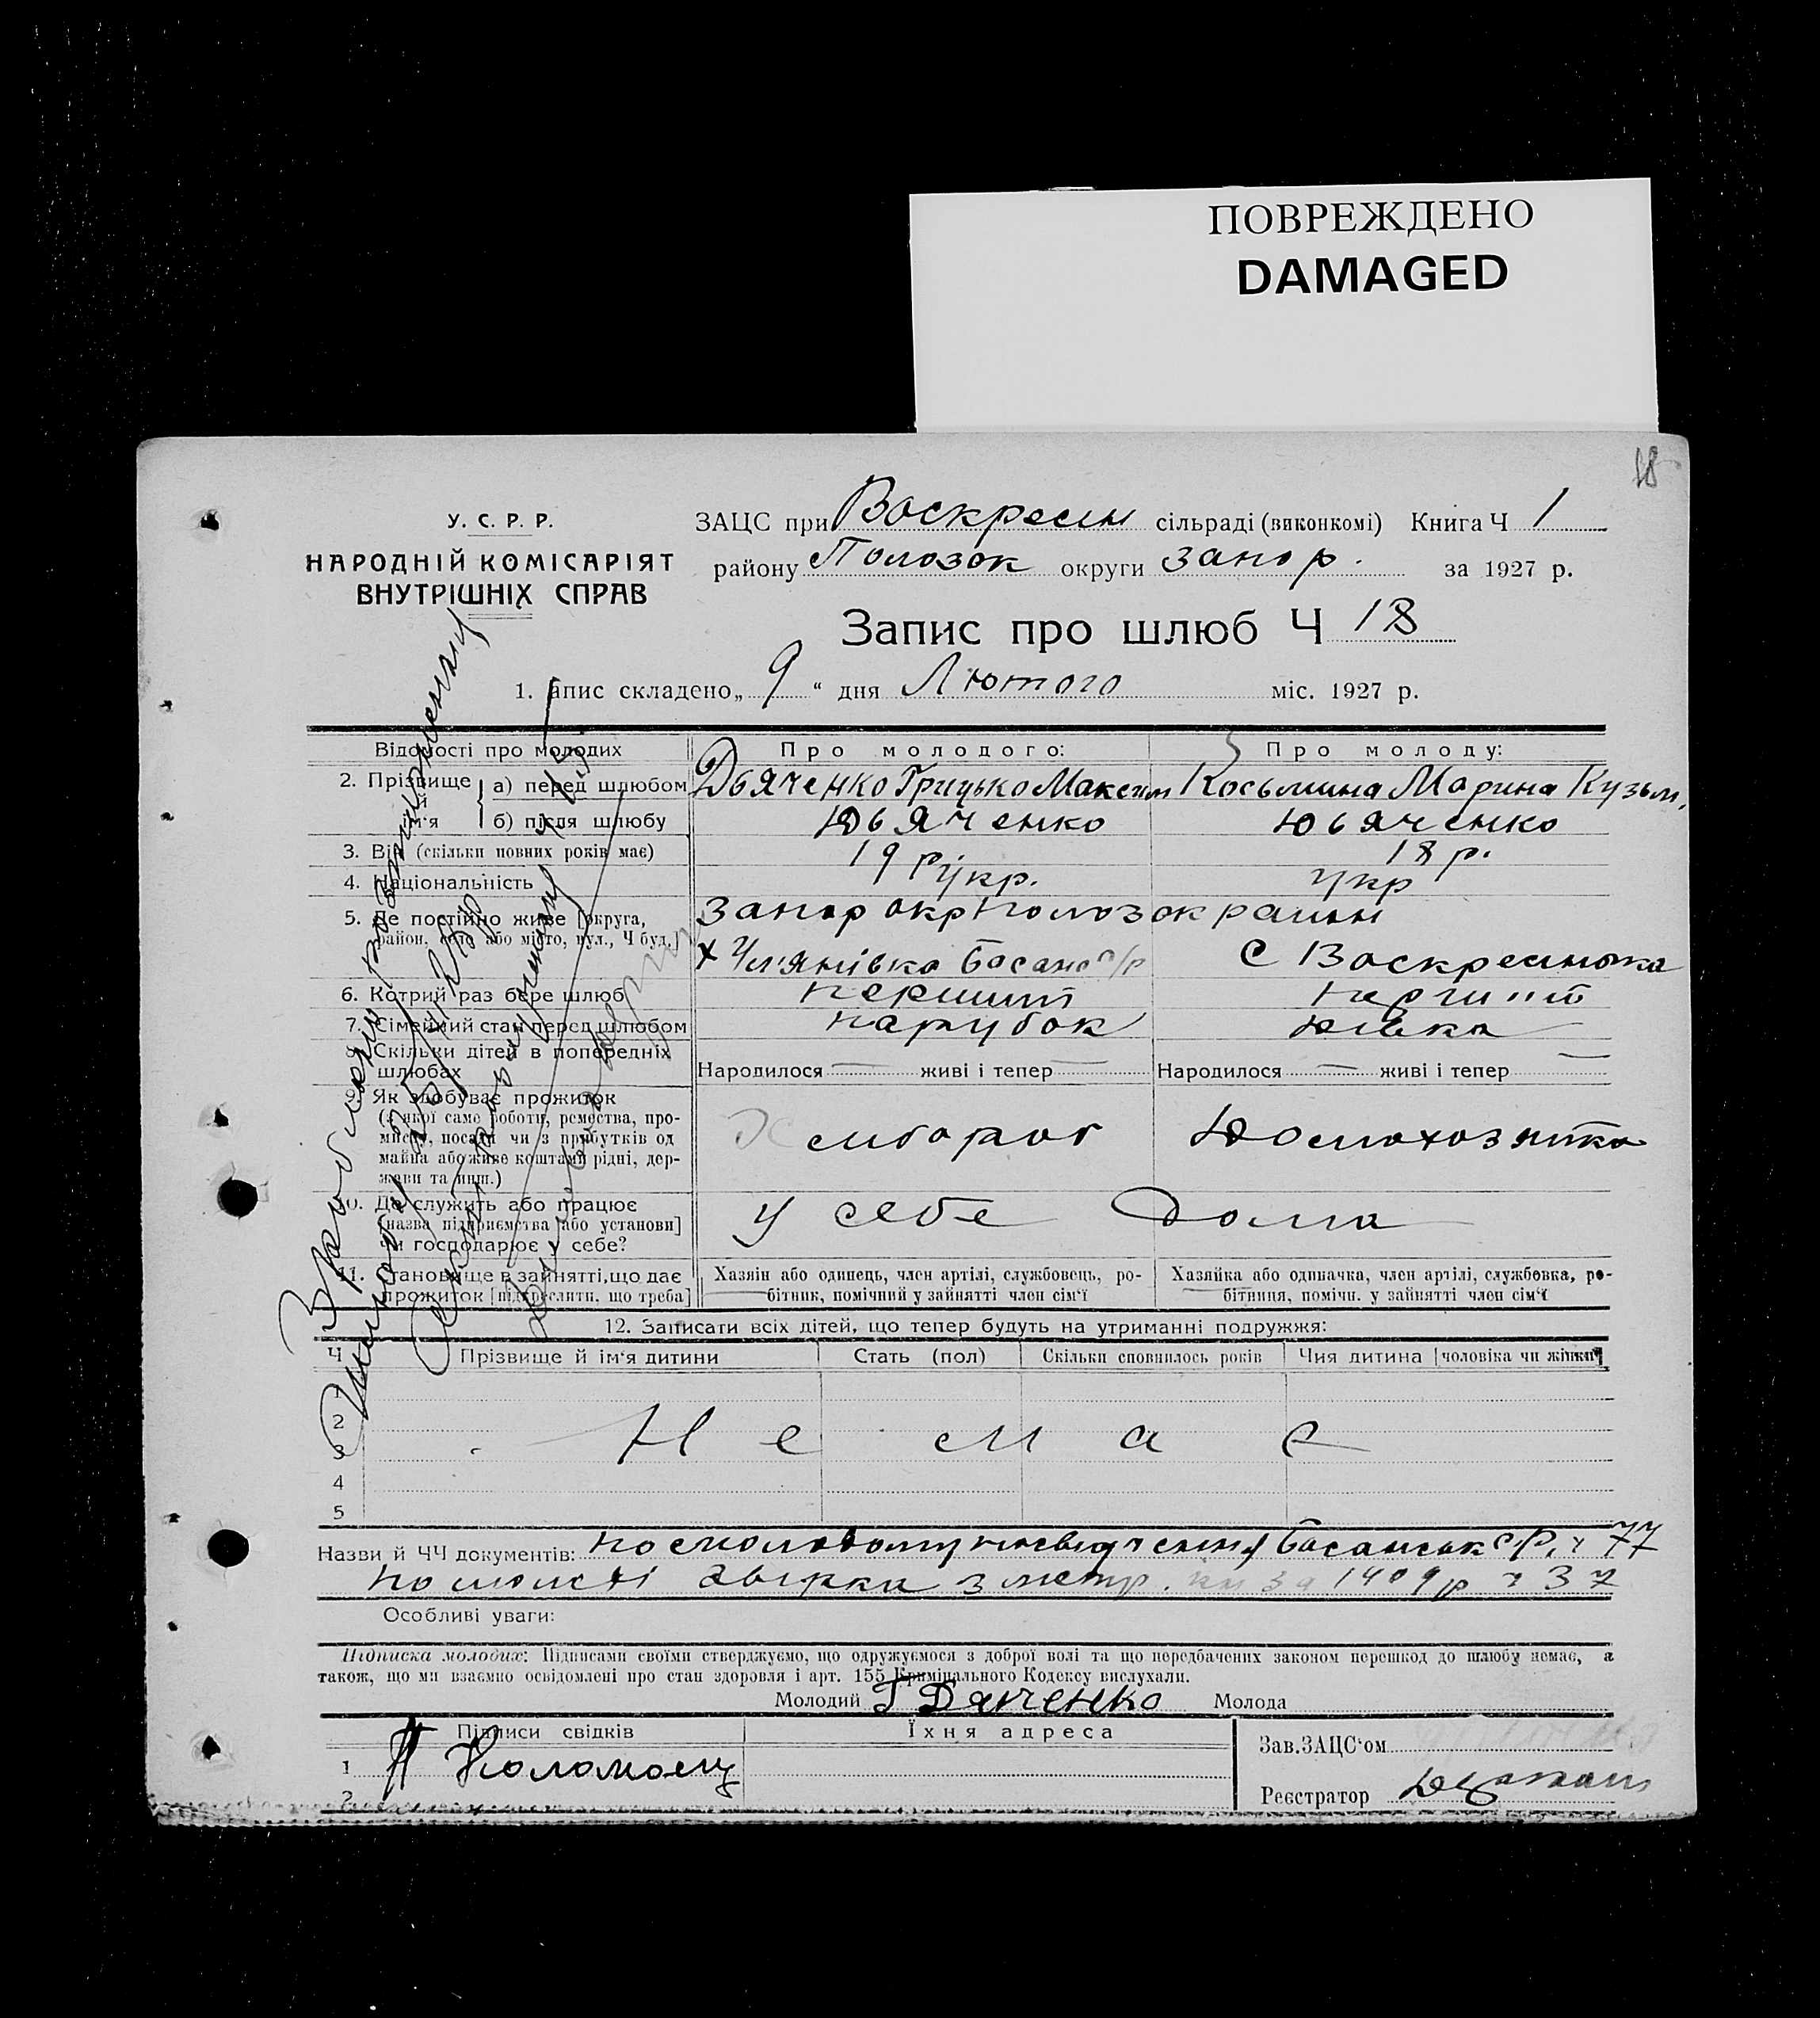 ПОВРЕЖДЕНО
DAMAGED
18
У. С. Р. Р.
НАРОДНІЙ КОМІСАРІЯТ
ВНУТРІШНІХ СПРАВ
ЗАЦС при Воскресен сільраді (виконкомі) Книга Ч 1
району Пологок округи Запор. за 1927 р.
Запис про шлюб Ч 18
1. апис складено „ 9 “ дня Лютого міс. 1927 р.
Відомості про молодих Про молодого: Про молоду:
2. Прізвище й ім‘я а) перед шлюбом Дьяченко Грицько Максим Косьмина Марина Кузьм.
б) після шлюбу Дьяченко Дьяченко
3. Вік (скільки повних років має) 19 р. 18 р.
4. Національність укр. укр
5. Де постійно живе [округа, Запор окр Полозок район
район, село або місто, вул., Ч буд.] Басанс с/р С Воскресенька
6. Котрий раз бере шлюб перший перший
7. Сімейний стан перед шлюбом парубок дівка
8. Скільки дітей в попередніх
шлюбах Народилося — живі і тепер — Народилося — живі і тепер —
9. Як здобуває прожиток
(з якої саме роботи, ремества, про-
мислу, посади чи з прибутків од Хлібороб Домохозяйка
майна або живе коштами рідні, дер-
жави та инш.)
10. Де служить або працює
[назва підприємства або установи] у себе дома
чи господарює у себе?
11. Становище в зайнятті, що дає Хазяїн або одинець, член артілі, службовець, ро- Хазяйка або одиначка, член артілі, службовка, ро-
прожиток [підкреслити, що треба] бітник, помічний у зайнятті член сім‘ї бітниця, помічн. у зайнятті член сім‘ї
12. Записати всіх дітей, що тепер будуть на утриманні подружжя:
Ч Прізвище й ім‘я дитини Стать (пол) Скільки сповнилось років Чия дитина [чоловіка чи жінки]
1
2
Немає
3
4
5
Назви й ЧЧ документів: Басанськ с.р. ч 77
з метр. кн за 1909 р ч 37
Особливі уваги:
Підписка молодих: Підписами своїми стверджуємо, що одружуємося з доброї волі та що передбачених законом перешкод до шлюбу немає, а
також, що ми взаємно освідомлені про стан здоровля і арт. 155 Кримінального Кодексу вислухали.
Молодий Г Дяченко Молода
Підписи свідків Їхня адреса
Зав. ЗАЦС‘ом
1 Коломоец
Реєстратор
2